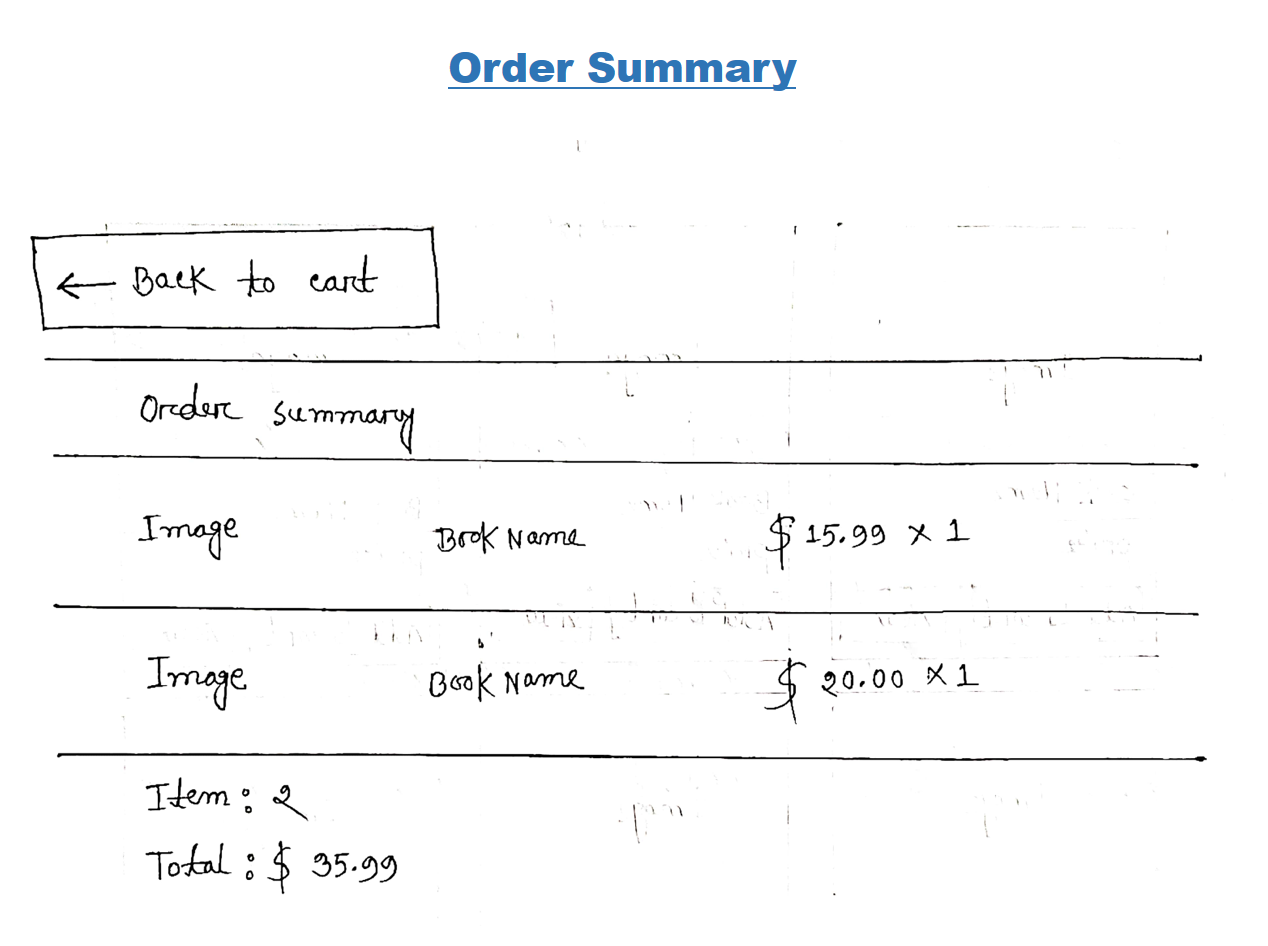 Order Summary
← Back to cart
Order summary
Image Book Name $ 15.99 x 1
Image Book Name $ 20.00 x 1
Item : 2
Total : $ 35.99